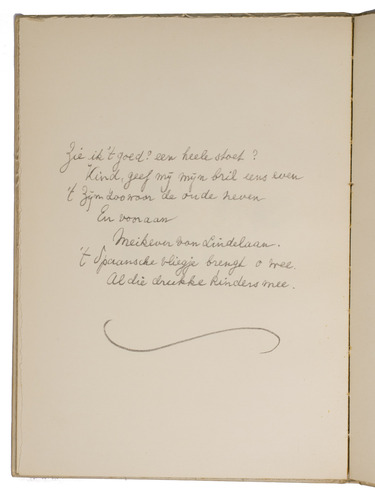 Zie ik 't goed? een heele stoet?
Kind, geef mij mijn bril eens even
't Zijn doovoor de oude neven
En vooraan
Meikever von Lindelaan.
't Spaansche vliegje brengt o wee
Al die drukke kinders mee.